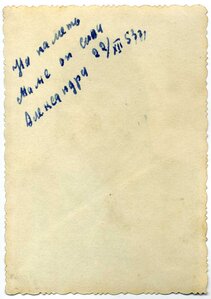 На память
Маме от сына
Александра 22/XII 53г.